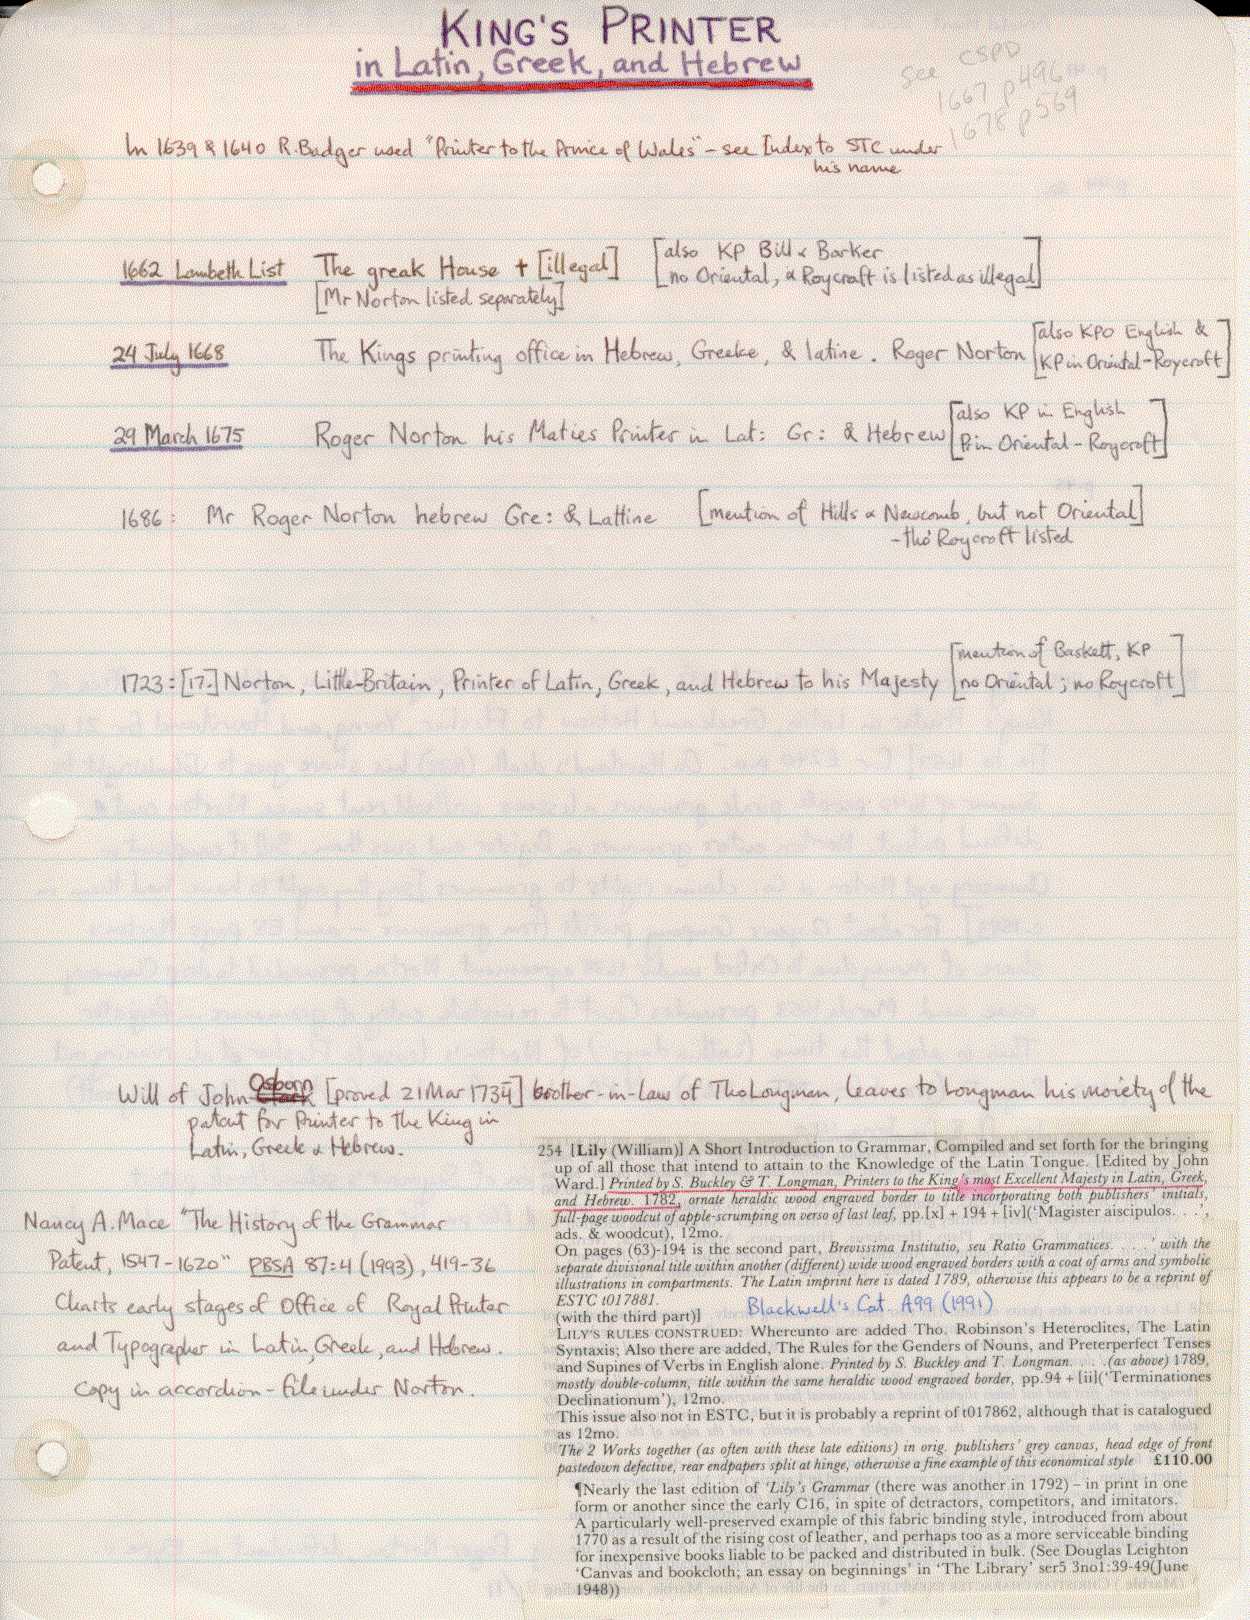 KING'S PRINTER
in Latin, Greek, and Hebrew
See CSPD
1667 p496
1678 p569
In 1639 & 1640 R. Badger used "Printer to the Prince of Wales" – see Index to STC under
his name
1662 Lambeth List The greak House + [illegal] [also KP Bill & Barker
no Oriental, & Roycroft is listed as illegal]
[Mr Norton listed separately]
24 July 1668 The Kings printing office in Hebrew, Greeke, & latine. Roger Norton [also KPO English &
KP in Oriental – Roycroft]
29 March 1675 Roger Norton his Maties Printer in Lat: Gr: & Hebrew [also KP in English
P in Oriental – Roycroft]
1686: Mr Roger Norton hebrew Gre: & Lattine [mention of Hills & Newcomb, but not Oriental]
– tho' Roycroft listed
1723: [17.] Norton, Little-Britain, Printer of Latin, Greek, and Hebrew to his Majesty [mention of Baskett, KP
no Oriental; no Roycroft]
Will of John Osborn [proved 21 Mar 1734] brother-in-law of Tho Longman, leaves to Longman his moiety of the
patent for Printer to the King in
Latin, Greek & Hebrew.
Nancy A. Mace "The History of the Grammar
Patent, 1547-1620" PBSA 87:4 (1993), 419-36
Charts early stages of Office of Royal Printer
and Typographer in Latin, Greek, and Hebrew.
Copy in accordion-file under Norton.
254 [Lily (William)] A Short Introduction to Grammar, Compiled and set forth for the bringing
up of all those that intend to attain to the Knowledge of the Latin Tongue. [Edited by John
Ward.] Printed by S. Buckley & T. Longman, Printers to the King's most Excellent Majesty in Latin, Greek,
and Hebrew. 1782, ornate heraldic wood engraved border to title incorporating both publishers' initials,
full-page woodcut of apple-scrumping on verso of last leaf, pp.[x] + 194 + [iv]('Magister aiscipulos. . .',
ads. & woodcut), 12mo.
On pages (63)-194 is the second part, Brevissima Institutio, seu Ratio Grammatices. . . .' with the
separate divisional title within another (different) wide wood engraved borders with a coat of arms and symbolic
illustrations in compartments. The Latin imprint here is dated 1789, otherwise this appears to be a reprint of
ESTC t017881.
Blackwell's Cat. A99 (1991)
(with the third part)]
LILY'S RULES CONSTRUED: Whereunto are added Tho. Robinson's Heteroclites, The Latin
Syntaxis; Also there are added, The Rules for the Genders of Nouns, and Preterperfect Tenses
and Supines of Verbs in English alone. Printed by S. Buckley and T. Longman. . . .(as above) 1789,
mostly double-column, title within the same heraldic wood engraved border, pp.94 + [ii]('Terminationes
Declinationum'), 12mo.
This issue also not in ESTC, but it is probably a reprint of t017862, although that is catalogued
as 12mo.
The 2 Works together (as often with these late editions) in orig. publishers' grey canvas, head edge of front
pastedown defective, rear endpapers split at hinge, otherwise a fine example of this economical style £110.00
¶Nearly the last edition of 'Lily's Grammar (there was another in 1792) – in print in one
form or another since the early C16, in spite of detractors, competitors, and imitators.
A particularly well-preserved example of this fabric binding style, introduced from about
1770 as a result of the rising cost of leather, and perhaps too as a more serviceable binding
for inexpensive books liable to be packed and distributed in bulk. (See Douglas Leighton
'Canvas and bookcloth; an essay on beginnings' in 'The Library' ser5 3no1:39-49(June
1948))